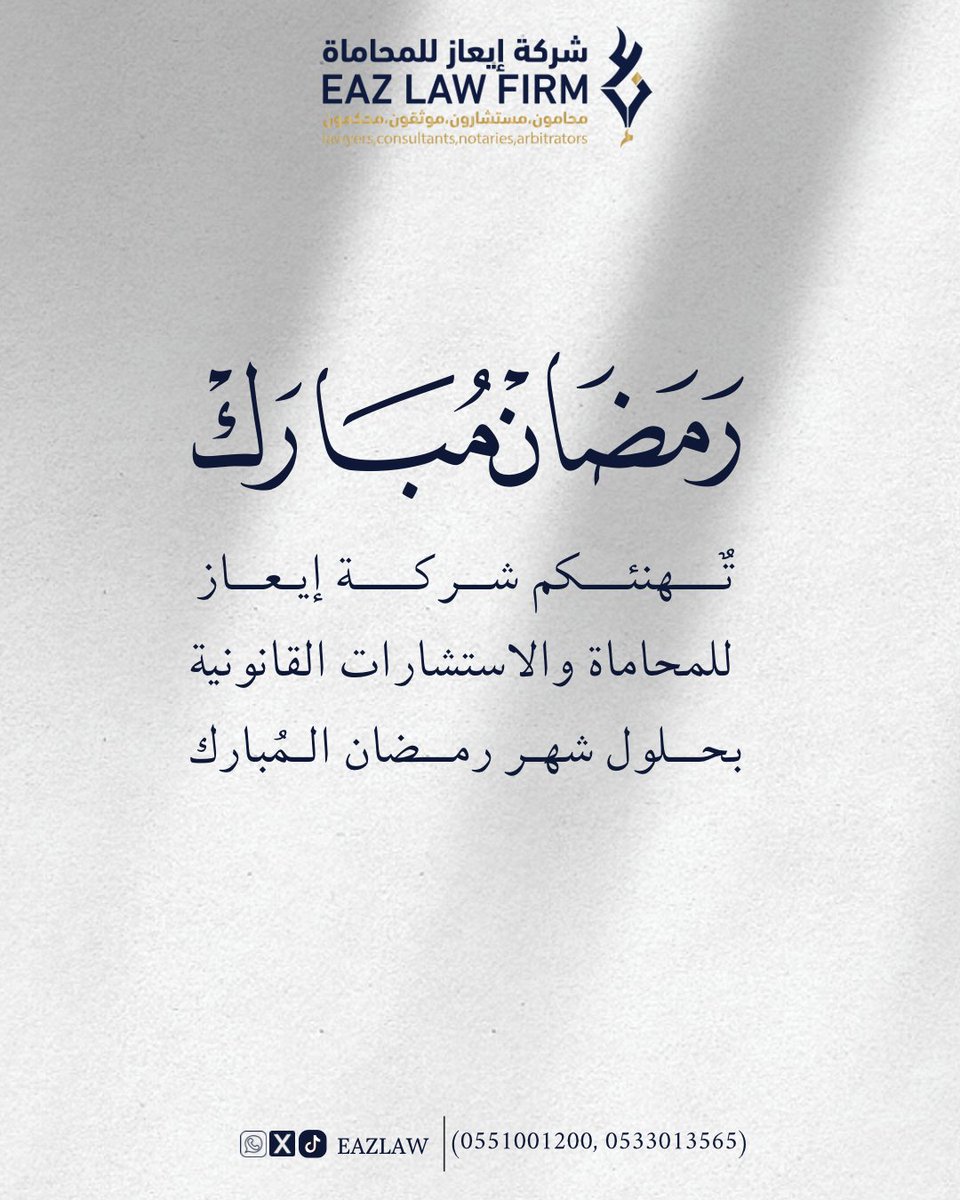 شركة إيعاز للمحاماة
EAZ LAW FIRM
محامون،مستشارون،موثقون،محكمون
lawyers,consultants,notaries,arbitrators
رَمَضَانْ مُبَارَكْ
تُهنئكم شركة إيعاز
للمحاماة والاستشارات القانونية
بحلول شهر رمضان المُبارك
EAZLAW (0551001200, 0533013565)